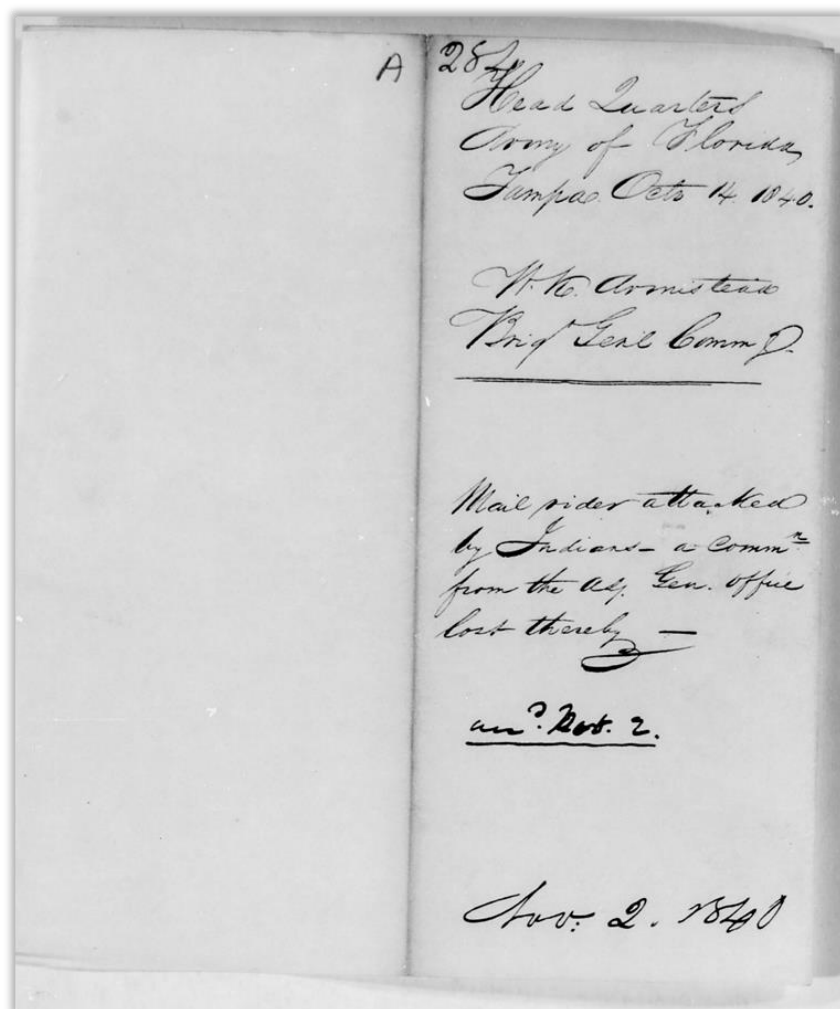 A 284
Head Quarters
Army of Florida
Tampa Octo 14. 1840.
W. K. Armistead
Brigr Genl Commg.
Mail rider attacked
by Indians - a Commn
from the Adj. Gen. Office
lost thereby —
ansd. Nov. 2.
Nov. 2. 1840